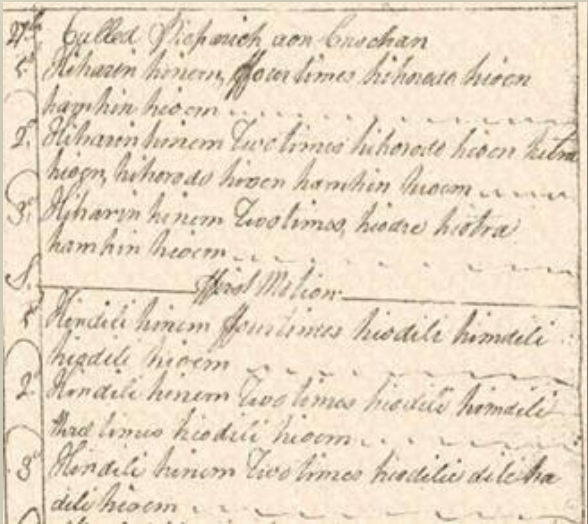 27th Called aon
1st Hiharin hinem, ffour times hihorodo hioen
hamhin hioem
2d Hiharin hinem Two times hihorodo hioen
hioen, hihorodo hioen hamhin hioem
3d Hiharin hinem Two times, hiodre hiotra
hamhin hioem
ffirst Motion
1st Hindili hinem ffour times hiodili himdili
hiodili hioem
2d Hindili hinem Two times hiodili himdili
times hiodili hioem
3d Hindili hinem Two times hiodili dili ha
dili hioem